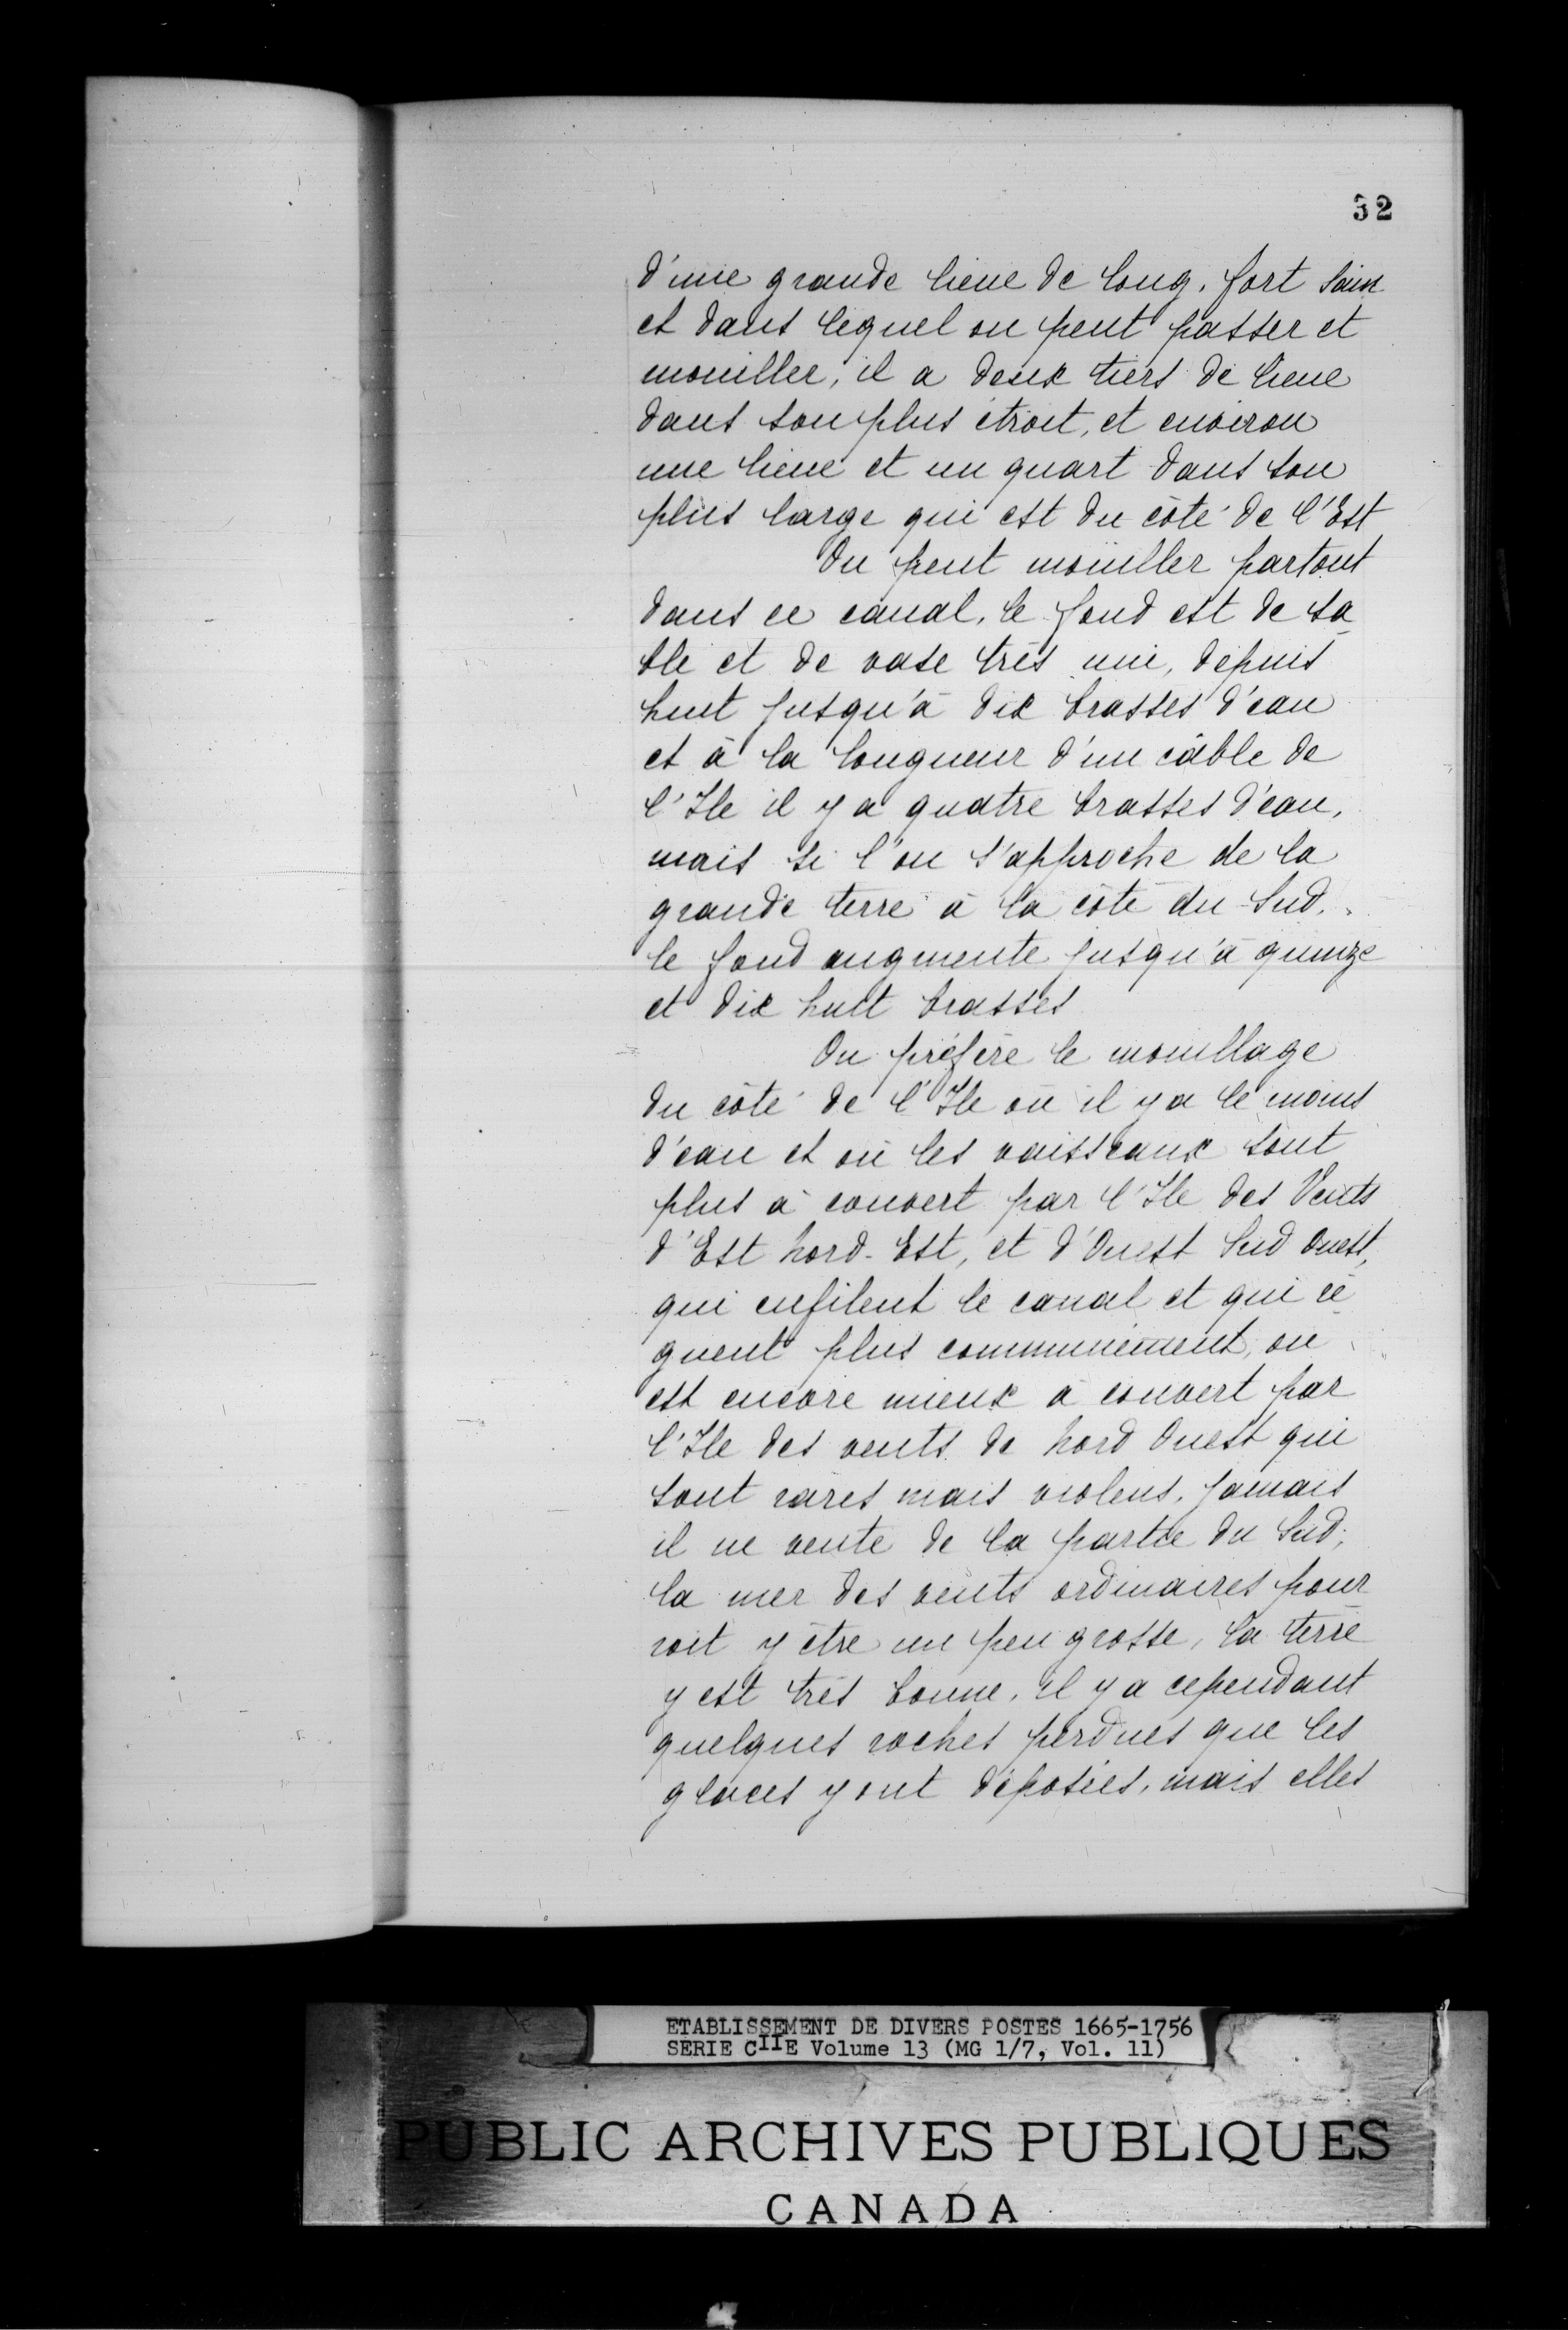 32
d'une grande lieue de long, fort sain
et dans lequel on peut passer et
mouiller, il a deux tiers de lieue
dans son plus étroit, et environ
une lieue et un quart dans son
plus large qui est du côté de l'Est
On peut mouiller partout
dans ce canal, le fond est de sa
ble et de vase très uni, depuis
huit jusqu'à dix brasses d'eau
et à la longueur d'un câble de
l'Ile il y a quatre brasses d'eau,
mais si l'on s'approche de la
grande terre à la côte du Sud,
le fond augmente jusqu'à quinze
et dix huit brasses
On préfère le mouillage
du côté de l'Ile où il y a le moins
d'eau et où les vaisseaux sont
plus à couvert par l'Ile des Vents
d'Est nord-Est, et d'Ouest Sud Ouest,
qui enfilent le canal et qui ré
gnent plus communément, on
est encore mieux à couvert par
l'Ile des vents de nord Ouest qui
sont rares mais violens, jamais
il ne vente de la partie du Sud;
la mer des vents ordinaires pour
roit y être un peu grosse, la terre
y est très bonne, il y a cependant
quelques roches perdues que les
glaces y ont déposées, mais elles
ETABLISSEMENT DE DIVERS POSTES 1665-1756
SERIE CIIE Volume 13 (MG 1/7, Vol. 11)
PUBLIC ARCHIVES PUBLIQUES
CANADA